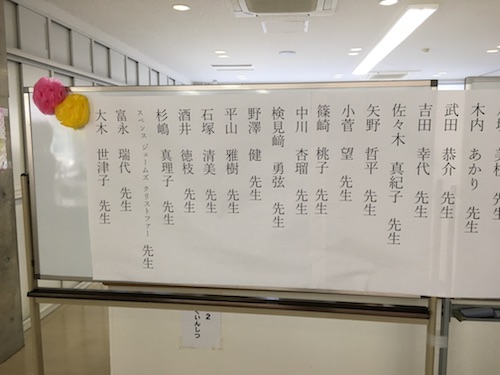 木内 あかり 先生
武田 恭介 先生
吉田 幸代 先生
佐々木 真紀子 先生
矢野 哲平 先生
小菅 望 先生
篠﨑 桃子 先生
中川 杏瑠 先生
検見﨑 勇弦 先生
野澤 健 先生
平山 雅樹 先生
石塚 清美 先生
酒井 徳枝 先生
杉嶋 真理子 先生
スペンス ジェームズ クリストファー 先生
富永 瑞代 先生
大木 世津子 先生
2
くいんしつ